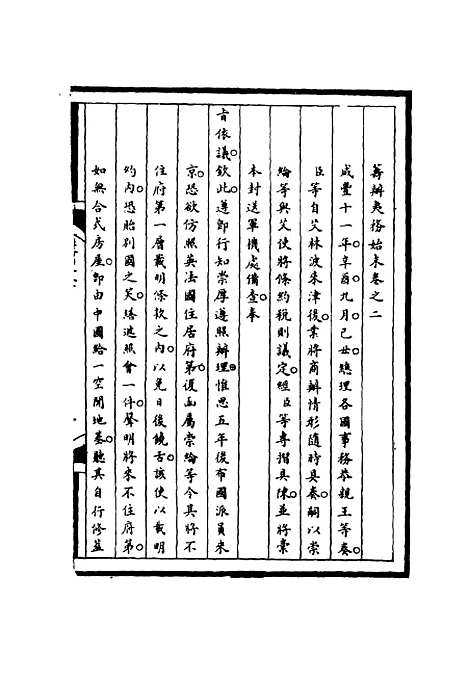 籌辦夷務始末卷之二
咸豐十一年辛酉九月己丑總理各國事務恭親王等奏
臣等自艾林波來津後業將商辦情形隨時具奏嗣以崇
綸等與艾使將條約稅則議定經臣等專摺具陳並將稟
本封送軍機處備查奉
旨依議欽此遵即行知崇厚遵照辦理惟思五年後布國派員來
京恐欲仿照英法國住居府第復面屬崇綸等令其將不
住府第一層載明條款之內以免日後饒舌該使以載明
約內恐貽別國之笑繕遞照會一件聲明將來不住府第
如無合式房屋即由中國給一空閒地基聽其自行修蓋